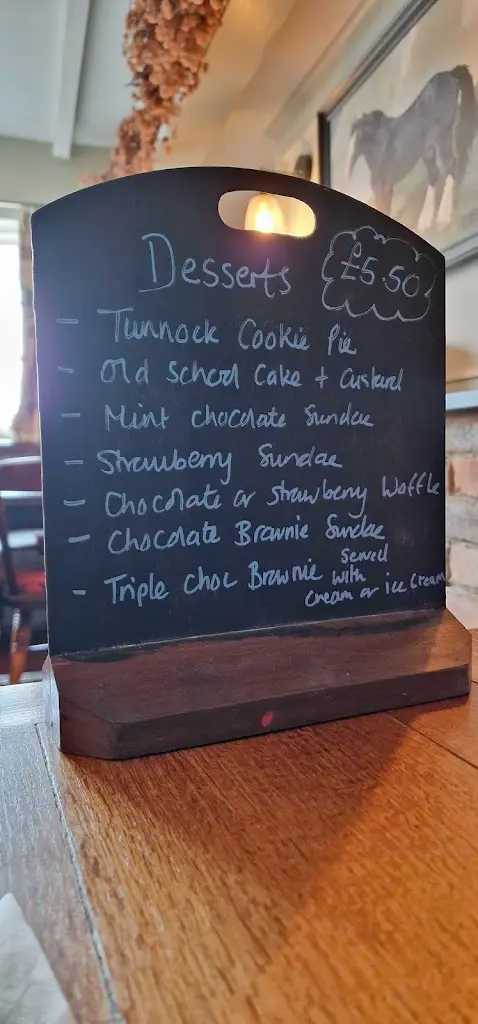 Desserts £5.50
- Tunnock Cookie Pie
- Old School Cake + Custard
- Mint Chocolate Sundae
- Strawberry Sundae
- Chocolate or Strawberry Waffle
- Chocolate Brownie Sundae
- Triple Choc Brownie Served
with
Cream or ice Cream